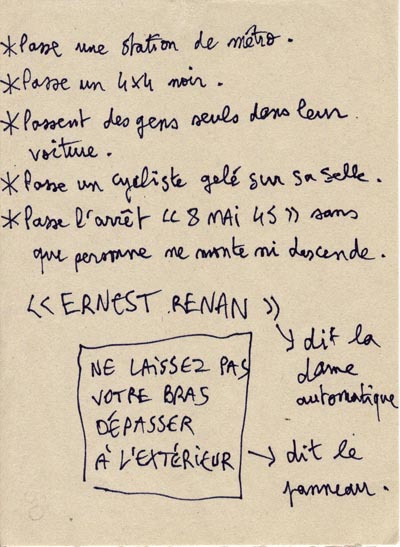 *Passe une station de métro.
*Passe un 4x4 noir.
*Passent des gens seuls dans leur
voiture.
*Passe un cycliste gelé sur sa selle.
*Passe l'arrêt << 8 MAI 45 >> sans
que personne ne monte ni descende.
<< ERNEST RENAN >>
→ dit la
dame
automatique
NE LAISSEZ PAS
VOTRE BRAS
DÉPASSER
À L'EXTÉRIEUR
→ dit le
panneau.